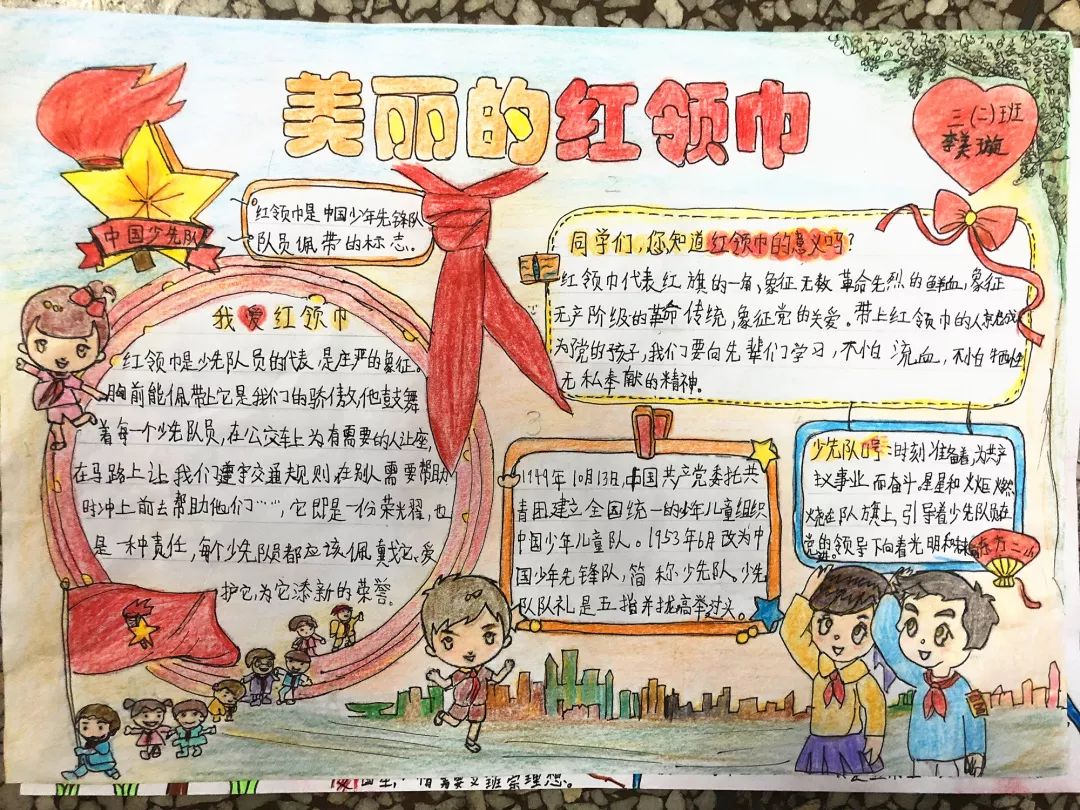 美丽的红领巾
三(二)班
李美璇
中国少先队
红领巾是中国少年先锋队
队员佩带的标志。
同学们,您知道红领巾的意义吗?
红领巾代表红旗的一角,象征无数革命先烈的鲜血,象征
无产阶级的革命传统,象征党的关爱。带上红领巾的人就成
为党的孩子,我们要向先辈们学习,不怕流血,不怕牺牲
无私奉献的精神。
我爱红领巾
红领巾是少先队员的代表,是庄严的象征。
胸前能佩带上它是我们的骄傲,他鼓舞
着每一个少先队员,在公交车上为有需要的人让座,
在马路上让我们遵守交通规则,在别人需要帮助
时冲上前去帮助他们……,它即是一份荣光耀,也
是一种责任,每个少先队员都应该佩戴它、爱
护它,为它添新的荣誉。
1949年10月13日,中国共产党委托共
青团建立全国统一的少年儿童组织
中国少年儿童队。1953年6月改为中
国少年先锋队,简称少先队。少先
队队礼是五指并拢高举过头。
少先队呼:时刻准备着,为共产
主义事业而奋斗,星星和火炬燃
烧在队旗上,引导着少先队员在
党的领导下向着光明和
东方二小